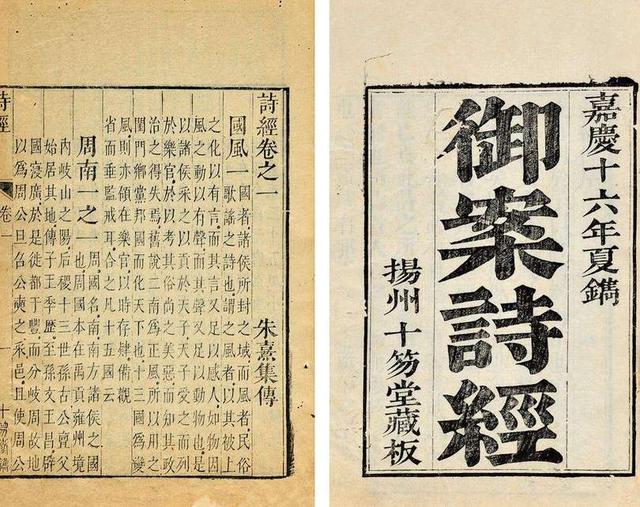 嘉慶十六年夏鐫
御案詩經
揚州十笏堂藏板
詩經卷之一 朱熹集傳
國風一 國者諸侯所封之域而風者民俗
歌謠之詩也謂之風者以其被上
之化以有言而其言又足以感人如物因
風之動以有聲而其聲又足以動物也是
以諸侯采之以貢於天子天子受之而列
於樂官於以考其俗尚之美惡而知其政
治之得失焉舊說二南爲正風所以用之
閨門鄉黨邦國而化天下也十三國爲變
風則亦領在樂官以時存肄備觀
省而垂監戒耳合之凡十五國云
周南一之一 周國名南南方諸侯之國
也周國本在禹貢雍州境
內岐山之陽后稷十三世孫古公亶父
始居其地傳子王季歷至孫文王昌辟
國寖廣於是徙都于豐而分岐周故地
以爲周公旦召公奭之采邑且使周公
詩經 卷一 一